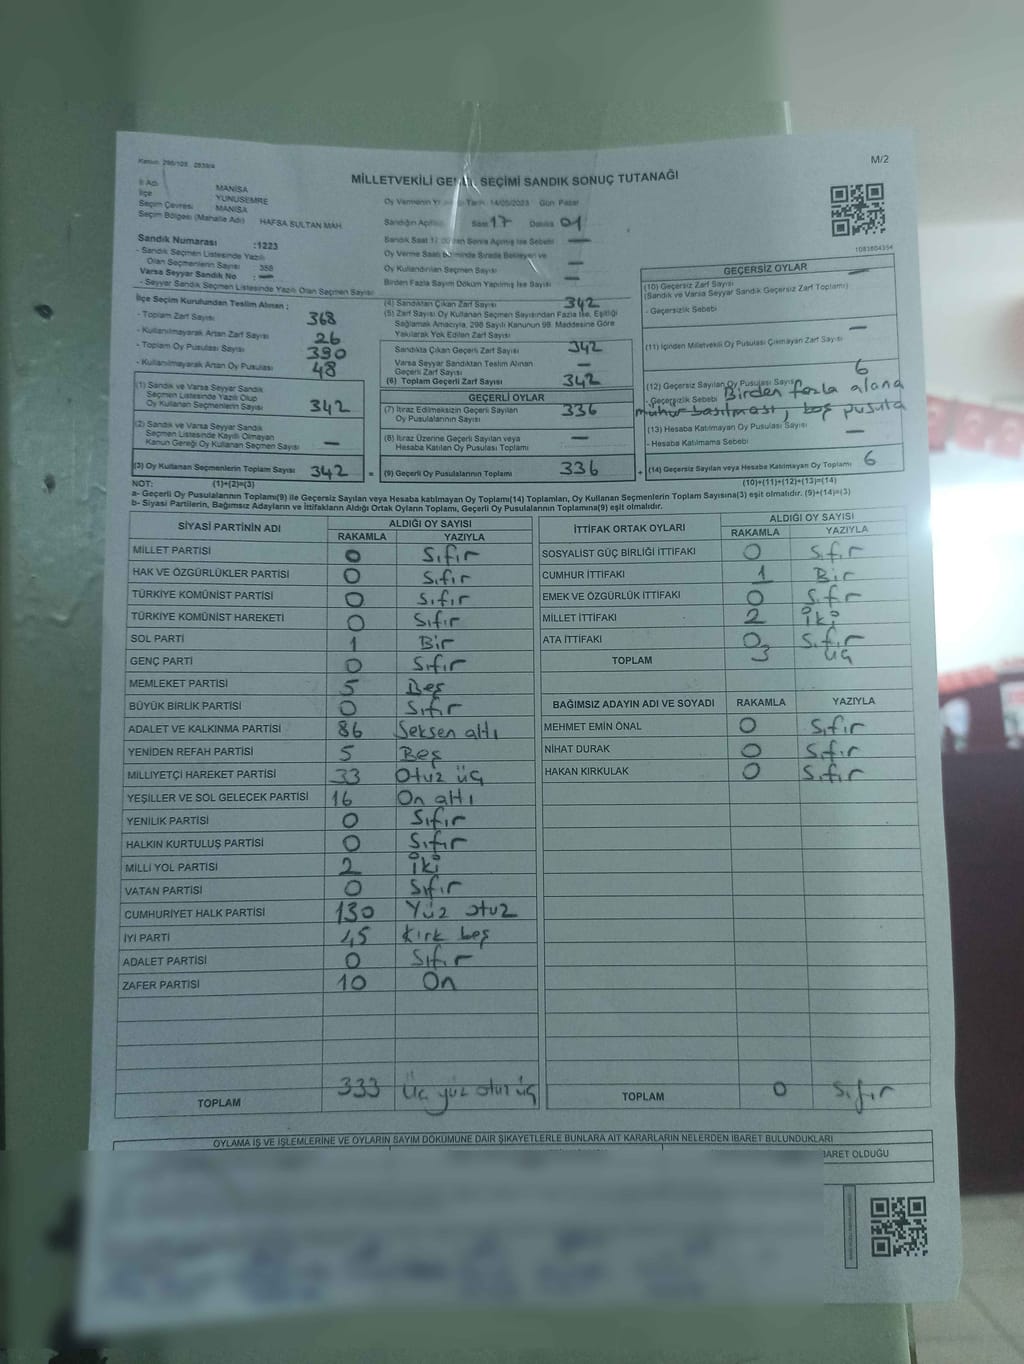 M/2
MİLLETVEKİLİ GENEL SEÇİMİ SANDIK SONUÇ TUTANAĞI
İl Adı MANİSA
İlçe YUNUSEMRE
Seçim Çevresi MANİSA
Seçim Bölgesi (Mahalle Adı) HAFSA SULTAN MAH.
Sandık Numarası :1223
- Sandık Seçmen Listesinde Yazılı
Olan Seçmenlerin Sayısı 358
Varsa Seyyar Sandık No : —
- Seyyar Sandık Seçmen Listesinde Yazılı Olan Seçmen Sayısı
Oy Vermenin Tarihi: 14/05/2023 Gün: Pazar
Sandığın Açılışı Saat 17 Dakika 01
Sandık Saat 17.00'den Sonra Açılmış İse Sebebi —
Oy Verme Saati Bitiminde Sırada Bekleyen ve
Oy Kullandırılan Seçmen Sayısı —
Birden Fazla Sayım Döküm Yapılmış İse Sayısı —
1083804354
İlçe Seçim Kurulundan Teslim Alınan ;
- Toplam Zarf Sayısı 368
- Kullanılmayarak Artan Zarf Sayısı 26
- Toplam Oy Pusulası Sayısı 390
- Kullanılmayarak Artan Oy Pusulası 48
(1) Sandık ve Varsa Seyyar Sandık
Seçmen Listesinde Yazılı Olup
Oy Kullanan Seçmenlerin Sayısı 342
(2) Sandık ve Varsa Seyyar Sandık
Seçmen Listesinde Kayıtlı Olmayan
Kanun Gereği Oy Kullanan Seçmen Sayısı —
(3) Oy Kullanan Seçmenlerin Toplam Sayısı 342 =
(4) Sandıktan Çıkan Zarf Sayısı 342
(5) Zarf Sayısı Oy Kullanan Seçmen Sayısından Fazla İse, Eşitliği
Sağlamak Amacıyla, 298 Sayılı Kanunun 98. Maddesine Göre
Yakılarak Yok Edilen Zarf Sayısı
Sandıkta Çıkan Geçerli Zarf Sayısı 342
Varsa Seyyar Sandıktan Teslim Alınan
Geçerli Zarf Sayısı —
(6) Toplam Geçerli Zarf Sayısı 342
GEÇERLİ OYLAR
(7) İtiraz Edilmeksizin Geçerli Sayılan
Oy Pusulalarının Sayısı 336
(8) İtiraz Üzerine Geçerli Sayılan veya
Hesaba Katılan Oy Pusulalarının Sayısı —
(9) Geçerli Oy Pusulalarının Toplamı 336 +
GEÇERSİZ OYLAR
(10) Geçersiz Zarf Sayısı —
(Sandık ve Varsa Seyyar Sandık Geçersiz Zarf Toplamı)
- Geçersizlik Sebebi
(11) İçinden Milletvekili Oy Pusulası Çıkmayan Zarf Sayısı —
(12) Geçersiz Sayılan Oy Pusulası Sayısı 6
- Geçersizlik Sebebi Birden fazla alana
mühür basılması, boş pusula
(13) Hesaba Katılmayan Oy Pusulası Sayısı —
- Hesaba Katılmama Sebebi
(14) Geçersiz Sayılan veya Hesaba Katılmayan Oy Toplamı 6
NOT: (1)+(2)=(3) (10)+(11)+(12)+(13)=(14)
a- Geçerli Oy Pusulalarının Toplamı(9) ile Geçersiz Sayılan veya Hesaba katılmayan Oy Toplamı(14) Toplamları, Oy Kullanan Seçmenlerin Toplam Sayısına(3) eşit olmalıdır. (9)+(14)=(3)
b- Siyasi Partilerin, Bağımsız Adayların ve İttifakların Aldığı Oyların Toplamı, Geçerli Oy Pusulalarının Toplamına(9) eşit olmalıdır.
SİYASİ PARTİNİN ADI ALDIĞI OY SAYISI
RAKAMLA YAZIYLA
MİLLET PARTİSİ 0 Sıfır
HAK VE ÖZGÜRLÜKLER PARTİSİ 0 Sıfır
TÜRKİYE KOMÜNİST PARTİSİ 0 Sıfır
TÜRKİYE KOMÜNİST HAREKETİ 0 Sıfır
SOL PARTİ 1 Bir
GENÇ PARTİ 0 Sıfır
MEMLEKET PARTİSİ 5 Beş
BÜYÜK BİRLİK PARTİSİ 0 Sıfır
ADALET VE KALKINMA PARTİSİ 86 Seksen altı
YENİDEN REFAH PARTİSİ 5 Beş
MİLLİYETÇİ HAREKET PARTİSİ 33 Otuz üç
YEŞİLLER VE SOL GELECEK PARTİSİ 16 On altı
YENİLİK PARTİSİ 0 Sıfır
HALKIN KURTULUŞ PARTİSİ 0 Sıfır
MİLLİ YOL PARTİSİ 2 İki
VATAN PARTİSİ 0 Sıfır
CUMHURİYET HALK PARTİSİ 130 Yüz otuz
İYİ PARTİ 45 Kırk beş
ADALET PARTİSİ 0 Sıfır
ZAFER PARTİSİ 10 On
TOPLAM 333 Üç yüz otuz üç
İTTİFAK ORTAK OYLARI ALDIĞI OY SAYISI
RAKAMLA YAZIYLA
SOSYALİST GÜÇ BİRLİĞİ İTTİFAKI 0 Sıfır
CUMHUR İTTİFAKI 1 Bir
EMEK VE ÖZGÜRLÜK İTTİFAKI 0 Sıfır
MİLLET İTTİFAKI 2 İki
ATA İTTİFAKI 0 Sıfır
TOPLAM 3 Üç
BAĞIMSIZ ADAYIN ADI VE SOYADI RAKAMLA YAZIYLA
MEHMET EMİN ÖNAL 0 Sıfır
NİHAT DURAK 0 Sıfır
HAKAN KIRKULAK 0 Sıfır
TOPLAM 0 Sıfır
OYLAMA İŞ VE İŞLEMLERİNE VE OYLARIN SAYIM DÖKÜMÜNE DAİR ŞİKAYETLERLE BUNLARA AİT KARARLARIN NELERDEN İBARET BULUNDUKLARI
BARET OLDUĞU